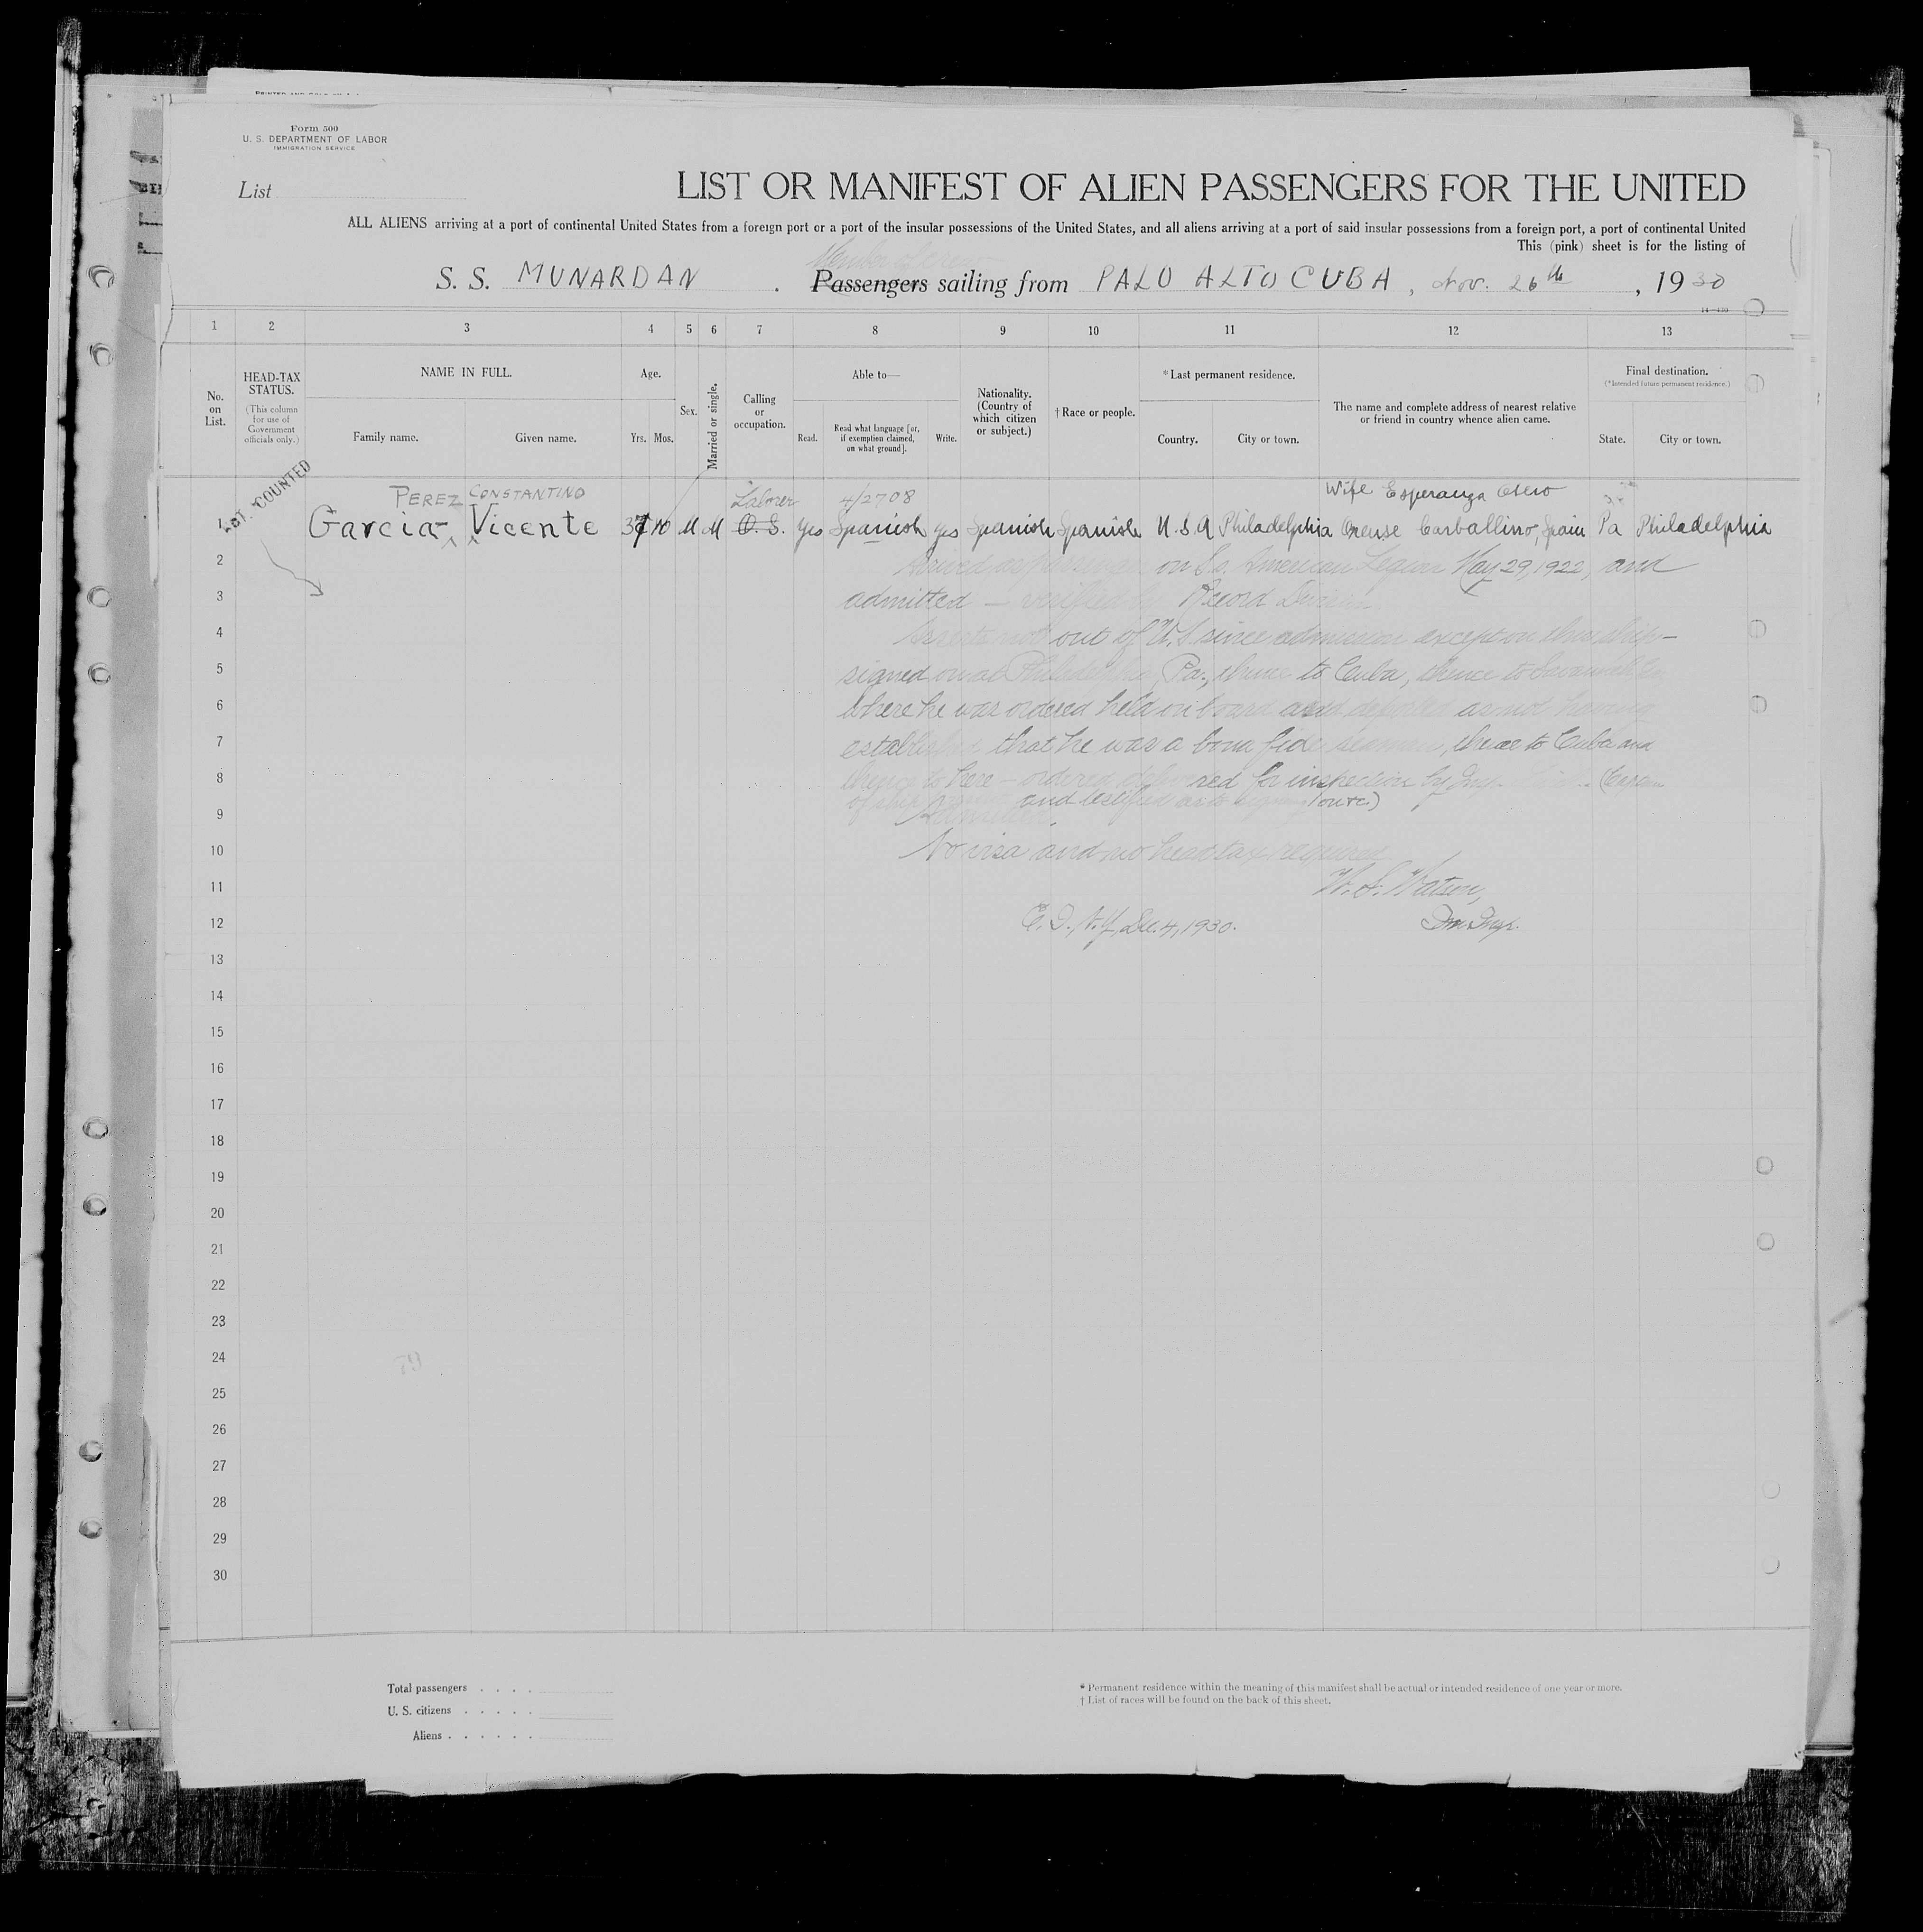 Form 500
U. S. DEPARTMENT OF LABOR
IMMIGRATION SERVICE
List
LIST OR MANIFEST OF ALIEN PASSENGERS FOR THE UNITED
ALL ALIENS arriving at a port of continental United States from a foreign port or a port of the insular possessions of the United States, and all aliens arriving at a port of said insular possessions from a foreign port, a port of continental United
This (pink) sheet is for the listing of
Member of crew
S. S. MUNARDAN . Passengers sailing from PALO ALTO CUBA, Nov. 26th, 1930
1 2 3 4 5 6 7 8 9 10 11 12 13
No. on List.
HEAD-TAX STATUS.
(This column for use of Government officials only.)
NAME IN FULL.
Family name. Given name.
Age.
Yrs. Mos.
Sex.
Married or single.
Calling or occupation.
Able to—
Read. Read what language [or, if exemption claimed, on what ground]. Write.
Nationality. (Country of which citizen or subject.)
†Race or people.
*Last permanent residence.
Country. City or town.
The name and complete address of nearest relative or friend in country whence alien came.
Final destination.
(*Intended future permanent residence.)
State. City or town.
COUNTED
PEREZ CONSTANTINO Laborer 4/2708 Wife Esperanza Otero
Garcia Vicente 37 10 M M O. S. Yes Spanish Yes Spanish Spanish U.S.A Philadelphia Orense Carballino, Spain Pa Philadelphia
2 Arrived as passenger on S.S. American Legion May 29, 1922, and
3 admitted — verified by Record Division
4 Asserts not out of U.S. since admission except on this ship—
5 signed on at Philadelphia, Pa., thence to Cuba, thence to Savannah
6 where he was ordered held on board and deported as not having
7 established that he was a bona fide seaman, thence to Cuba and
8 thence to here — ordered delivered for inspection by Insp. (Captain
of ship and testified as to signing on etc.)
9 Admitted.
10 No visa and no head tax required
11 W. S. Watson,
12 E. I., N.Y., Dec. 4, 1930. Im. Insp.
13
14
15
16
17
18
19
20
21
22
23
24
25
26
27
28
29
30
Total passengers . . . .
U. S. citizens . . . . .
Aliens . . . . . .
* Permanent residence within the meaning of this manifest shall be actual or intended residence of one year or more.
† List of races will be found on the back of this sheet.